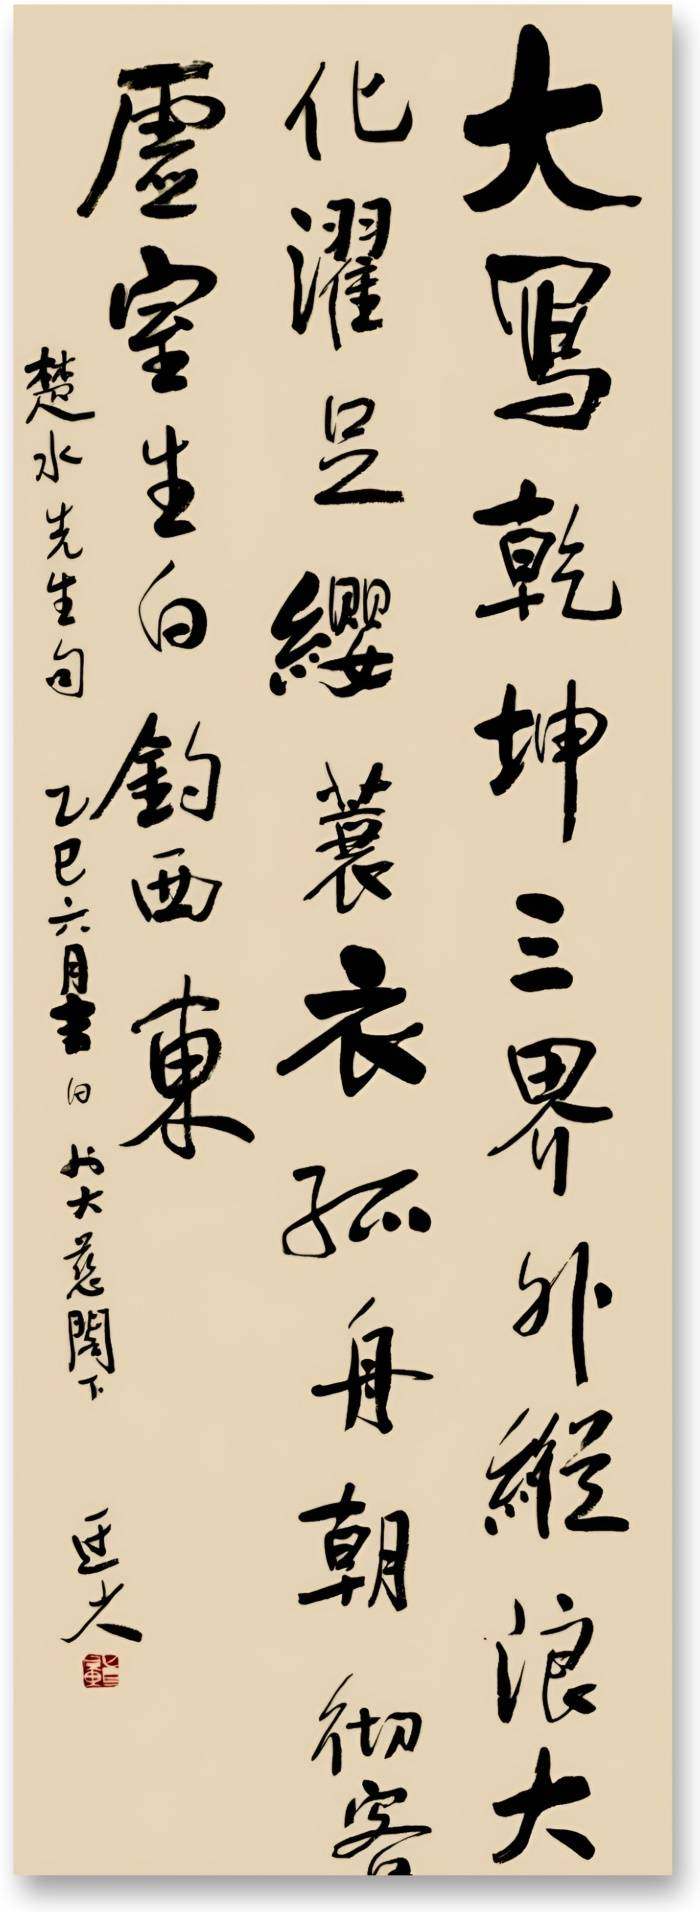 大寫乾坤三界外縱浪大
化濯足纓蓑衣孤舟朝彻客
虛室生白釣西東
楚水先生句 乙巳六月書 白 於大慈閣下
迂夫